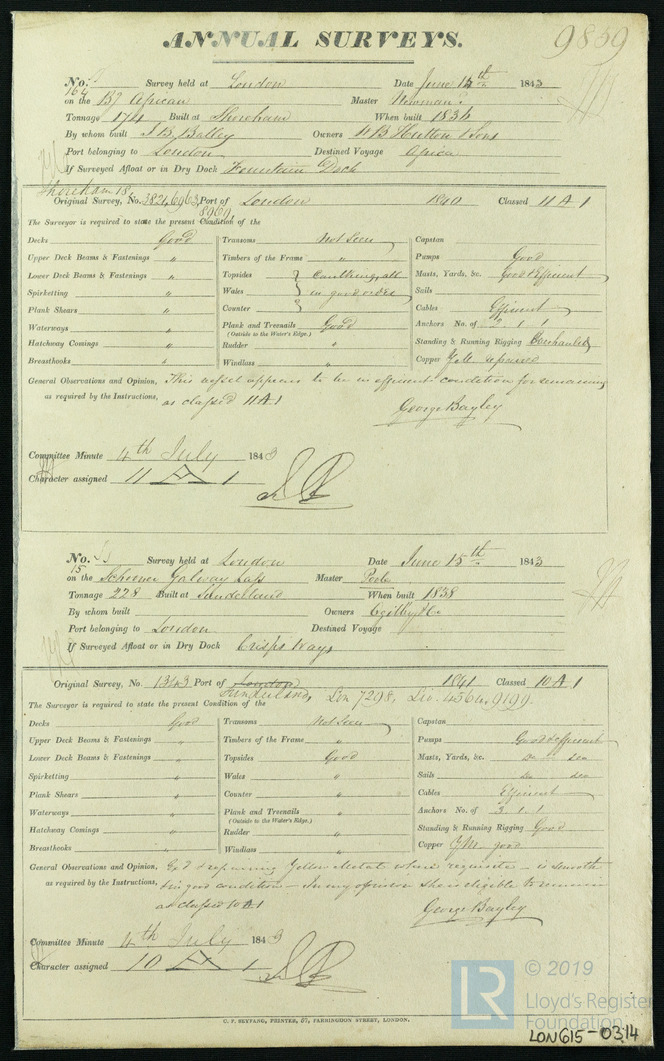 ANNUAL SURVEYS.
9859
No. Survey held at London Date June 15th 1843
164
on the Bg African Master Newman
Tonnage 174 Built at Shoreham When built 1836
By whom built J B Balley Owners W B Hutton & Sons
Port belonging to London Destined Voyage Africa
If Surveyed Afloat or in Dry Dock Fountain Dock
Shoreham 18,
Original Survey, No. 3824, 6963, Port of London 1840 Classed 11 A 1
8969,
The Surveyor is required to state the present Condition of the
Decks Good Transoms Not Seen Capstan
Upper Deck Beams & Fastenings " Timbers of the Frame " Pumps Good
Lower Deck Beams & Fastenings " Topsides Caulking, all Masts, Yards, &c. Good & Efficient
Spirketting " Wales in good order Sails
Plank Shears " Counter Cables Efficient
Waterways " Plank and Treenails Good Anchors No. of 2. 1. 1
(Outside to the Water's Edge.)
Hatchway Comings " Rudder " Standing & Running Rigging Overhauled
Breasthooks " Windlass " Copper Y.M. repaired
General Observations and Opinion, This vessel appears to be in efficient condition for remaining
as required by the Instructions, as classed 11 A 1
George Bayley
Committee Minute 4th July 1843
Character assigned 11 A 1
No. Survey held at London Date June 15th 1843
15
on the Schooner Galway Lass Master Poole
Tonnage 228 Built at Sunderland When built 1838
By whom built Owners Ogilby & Co
Port belonging to London Destined Voyage
If Surveyed Afloat or in Dry Dock Crisps Ways
Original Survey, No. 1343 Port of London 1841 Classed 10 A 1
Sunderland, Lon 7298, Liv. 4564, 9199.
The Surveyor is required to state the present Condition of the
Decks Good Transoms Not Seen Capstan
Upper Deck Beams & Fastenings " Timbers of the Frame " Pumps Good & efficient
Lower Deck Beams & Fastenings " Topsides Good Masts, Yards, &c. do do
Spirketting " Wales " Sails do do
Plank Shears " Counter " Cables Efficient
Waterways " Plank and Treenails " Anchors No. of 3. 1. 1
(Outside to the Water's Edge.)
Hatchway Comings " Rudder " Standing & Running Rigging Good
Breasthooks " Windlass " Copper Y.M. good
General Observations and Opinion, & repairing Yellow Metal where requisite — is smooth
as required by the Instructions, & in good condition — In my opinion She is eligible to remain
as classed 10 A 1
George Bayley
Committee Minute 4th July 1843
Character assigned 10 A 1
C. F. SEYFANG, PRINTER, 57, FARRINGDON STREET, LONDON.
LR
© 2019
Lloyd's Register
Foundation
LON615-0314